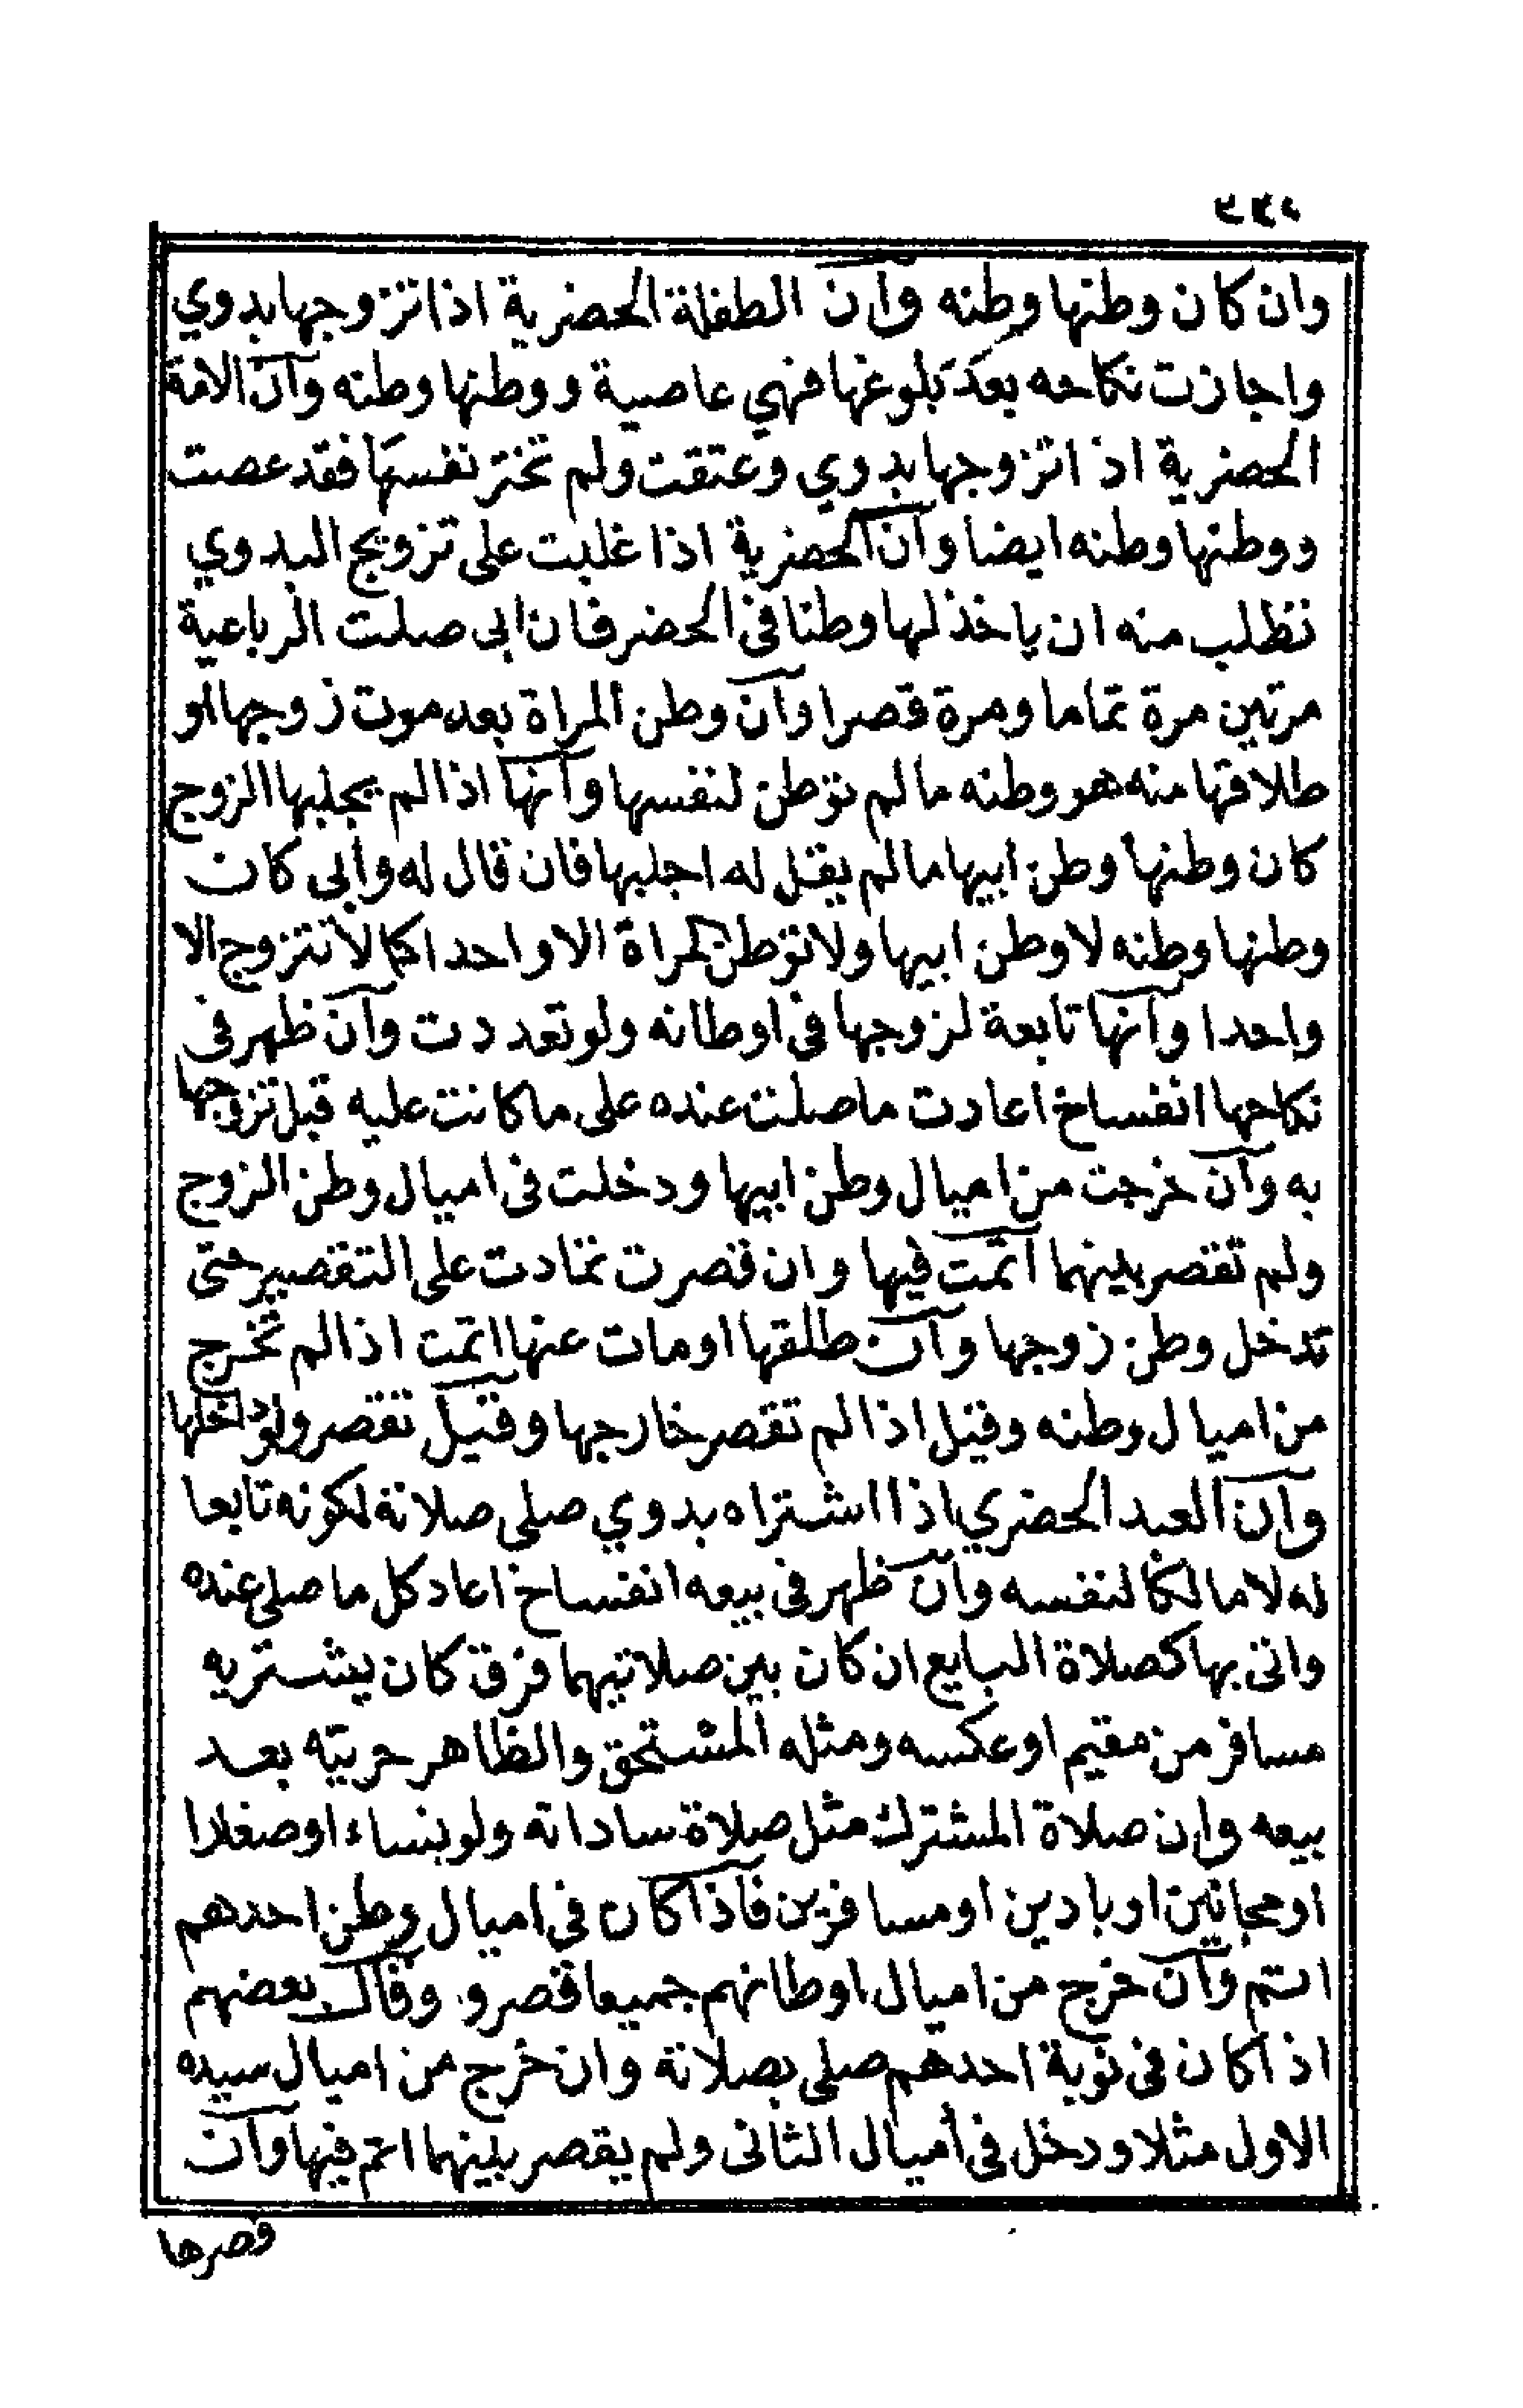 وان كان وطنها وطنه وان الطفلة الحضرية اذا تزوجها بدوي
واجازت نكاحه بعد بلوغها فهي عاصية ووطنها وطنه وان الامة
الحضرية اذا تزوجها بدوي وعتقت ولم تختر نفسها فقد عصت
ووطنها وطنه ايضا وان الحضرية اذا غلبت على تزويج البدوي
تطلب منه ان ياخذ لها وطنا في الحضر فان ابى صلت الرباعية
مرتين مرة تماما ومرة قصرا وان وطن المراة بعد موت زوجها او
طلاقها منه هو وطنه ما لم توطن لنفسها وانها اذا لم يجلبها الزوج
كان وطنها وطن ابيها ما لم يقل له اجلبها فان قال له وابى كان
وطنها وطنه لا وطن ابيها ولا توطن المراة الا واحدا كما لا تتزوج الا
واحدا وانها تابعة لزوجها في اوطانه ولو تعددت وان ظهر في
نكاحها انفساخ اعادت ما صلت عنده على ما كانت عليه قبل تزوجها
به وان خرجت من اميال وطن ابيها ودخلت في اميال وطن الزوج
ولم تقصر بينهما اتمت فيها وان قصرت تمادت على التقصير حتى
تدخل وطن زوجها وان طلقها او مات عنها اتمت اذا لم تخرج
من اميال وطنه وقيل اذا لم تقصر خارجها وقيل تقصر ولو داخلها
وان العبد الحضري اذا اشتراه بدوي صلى صلاته لكونه تابعا
له لا مالكا لنفسه وان ظهر في بيعه انفساخ اعاد كل ما صلى عنده
واتى بها كصلاة البايع ان كان بين صلاتيهما فرق كان يشتريه
مسافر من مقيم او عكسه ومثله المستحق والظاهر حريته بعد
بيعه وان صلاة المشترك مثل صلاة ساداته ولو بنساء او صغارا
او مجانين او بادين او مسافرين فاذا كان في اميال وطن احدهم
اتم وان خرج من اميال اوطانهم جميعا قصر وقال بعضهم
اذا كان في نوبة احدهم صلى بصلاته وان خرج من اميال سيده
الاول مثلا ودخل في اميال الثاني ولم يقصر بينهما اتم فيها وان
قصرها